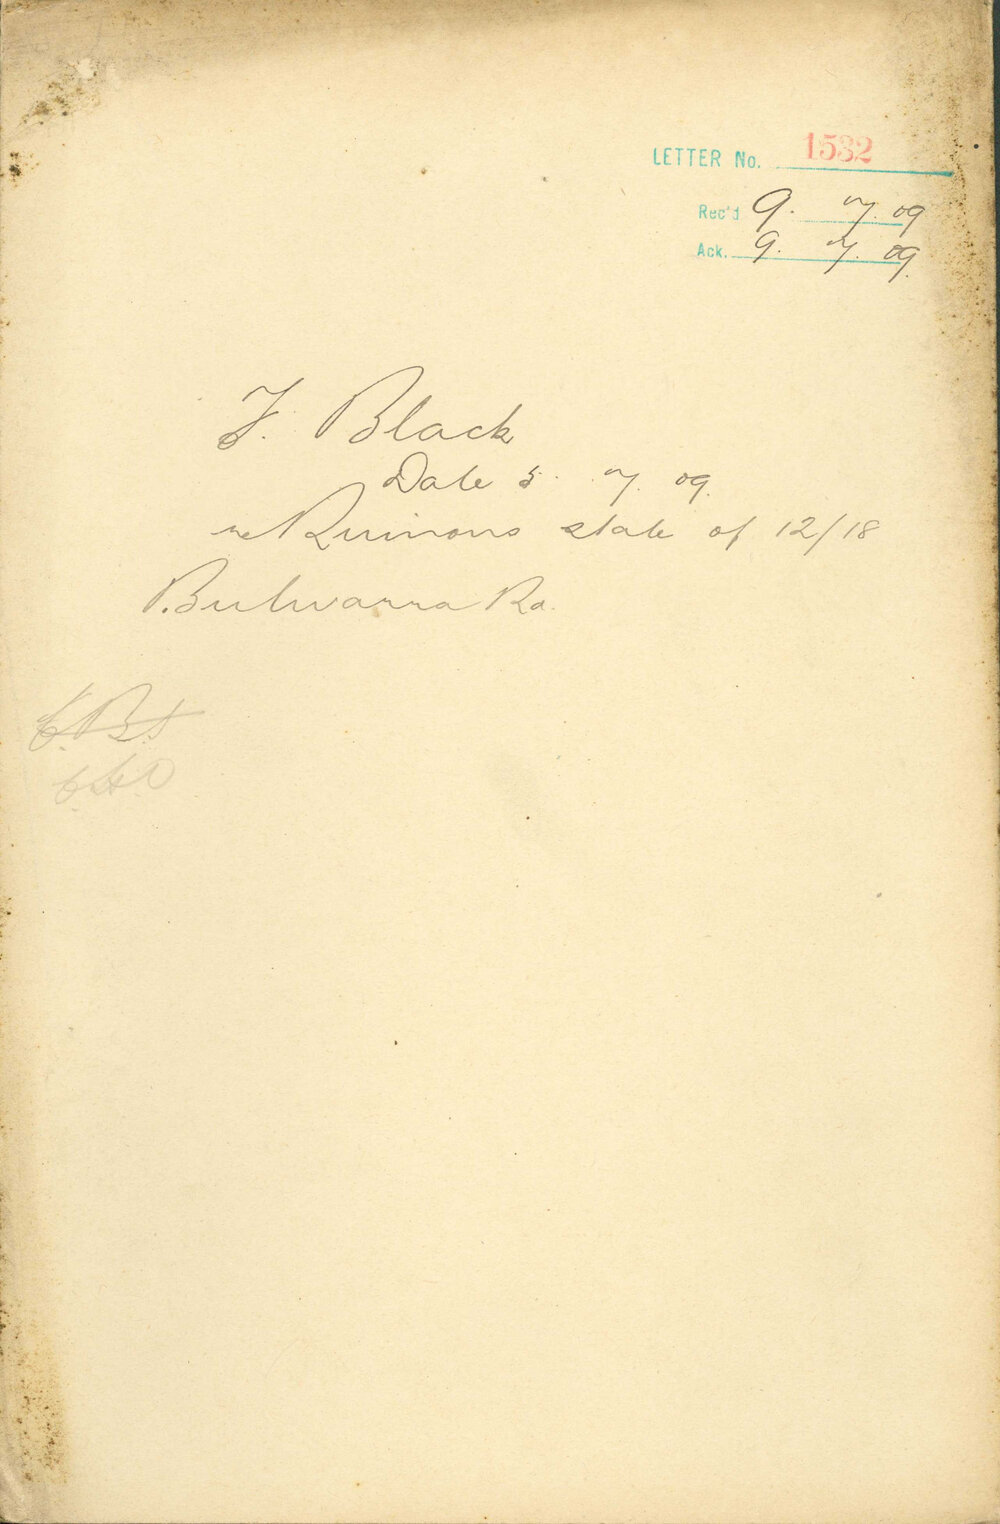 LETTER No. 1532
Rec'd 9. 7. 09
Ack. 9. 7. 09.
F. Black
Date 5. 7. 09.
re Ruinous state of 12/18
Bulwarra Rd.
C.B.S